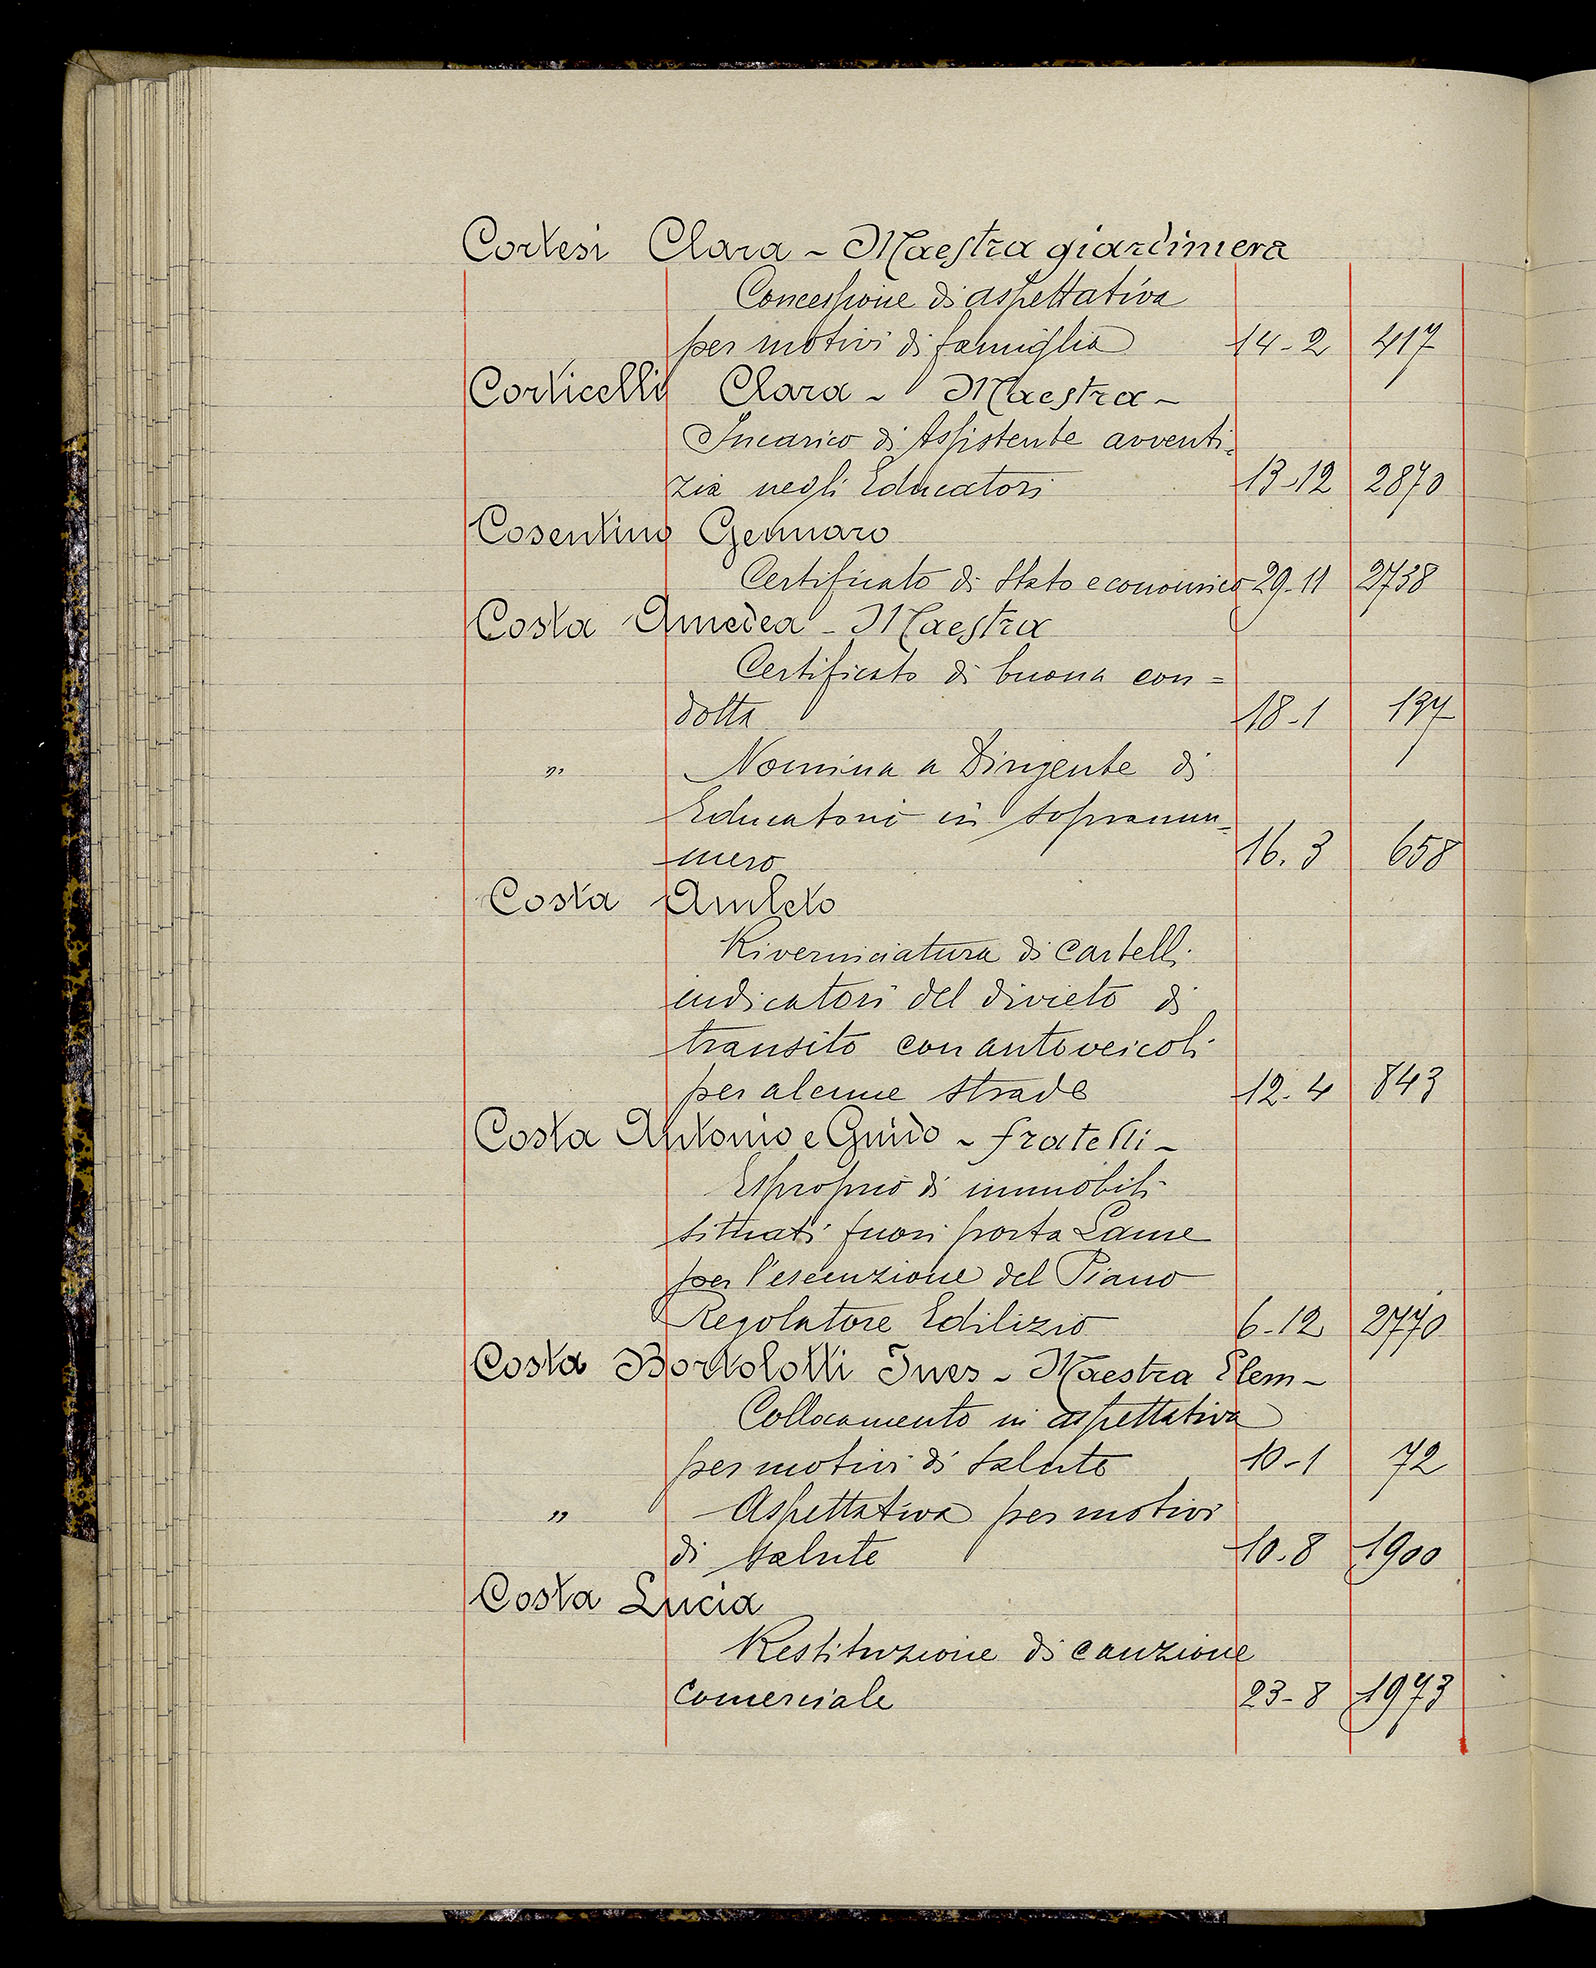 Cortesi Clara - Maestra giardiniera
Concessione di aspettativa
per motivi di famiglia 14-2 417
Corticelli Clara - Maestra -
Incarico di Assistente avventi-
zia negli Educatori 13-12 2870
Cosentino Gennaro
Certificato di Stato economico 29-11 2738
Costa Amedea - Maestra
Certificato di buona con=
dotta 18-1 137
" Nomina a Dirigente di
Educatorio in soprannu-
mero 16.3 658
Costa Amleto
Riverniciatura di cartelli
indicatori del divieto di
transito con autoveicoli
per alcune strade 12.4 843
Costa Antonio e Guido - fratelli -
Esproprio di immobili
situati fuori porta Lame
per l'esecuzione del Piano
Regolatore Edilizio 6-12 2770
Costa Bortolotti Ines - Maestra Elem -
Collocamento in aspettativa
per motivi di salute 10-1 72
" Aspettativa per motivi
di salute 10.8 1900
Costa Lucia
Restituzione di cauzione
comerciale 23-8 1973